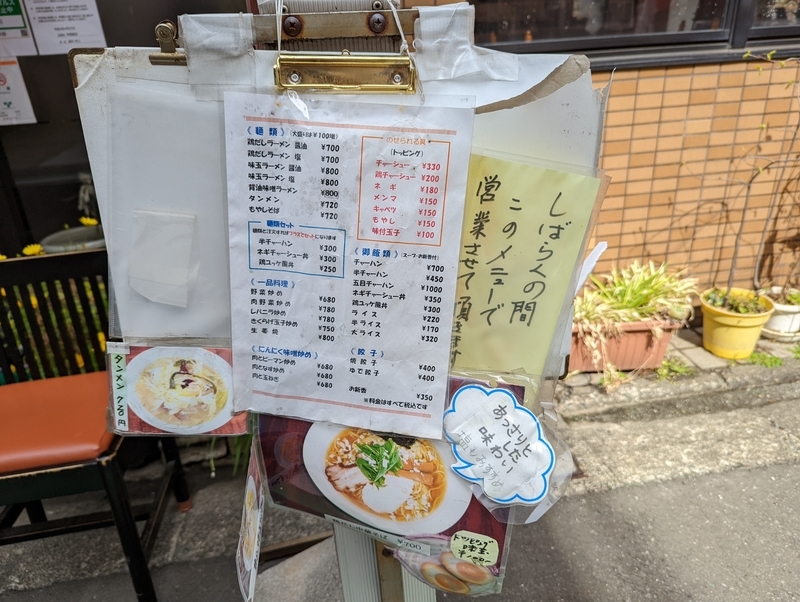 《 麺 類 》 (大盛りは￥100増)
鶏だしラーメン 醤油 ¥700
鶏だしラーメン 塩 ¥700
味玉ラーメン 醤油 ¥800
味玉ラーメン 塩 ¥800
背油味噌ラーメン ¥800
タンメン ¥720
もやしそば ¥720
のせられる具
(トッピング)
チャーシュー ¥330
鶏チャーシュー ¥200
ネギ ¥180
メンマ ¥150
キャベツ ¥150
もやし ¥150
味付玉子 ¥100
麺類セット
麺類と注文すればプラスでセットになります
半チャーハン ¥300
ネギチャーシュー丼 ¥300
鶏ユッケ風丼 ¥250
《 御飯類 》 (スープ・お新香付)
チャーハン ¥700
半チャーハン ¥450
五目チャーハン ¥1000
ネギチャーシュー丼 ¥350
鶏ユッケ風丼 ¥300
ライス ¥220
半ライス ¥170
大ライス ¥320
《 一品料理 》
野菜炒め ¥680
肉野菜炒め ¥780
レバニラ炒め ¥750
きくらげ玉子炒め ¥780
生姜焼 ¥800
《 にんにく味噌炒め 》
肉とピーマン炒め ¥680
肉となす炒め ¥680
肉と玉ねぎ ¥680
《 餃子 》
焼餃子 ¥400
ゆで餃子 ¥400
お新香 ¥350
※料金はすべて税込です
しばらくの間
このメニューで
営業させて頂きます
タンメン 720円
あっさりと
した
味わい
塩もおすすめ
¥700
トッピング
味玉